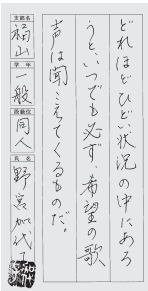 どれほどひどい状況の中にあろ
うと、いつでも必ず、希望の歌
声は聞こえてくるものだ。
支部名
福山
学年
一般
段級位
同人
氏名
野宮加代子